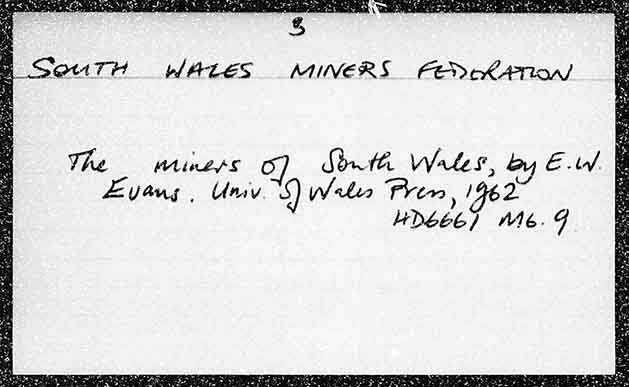 3
SOUTH WALES MINERS FEDERATION
The miners of South Wales, by E.W.
Evans. Univ. of Wales Press, 1962
HD6661 M6.9